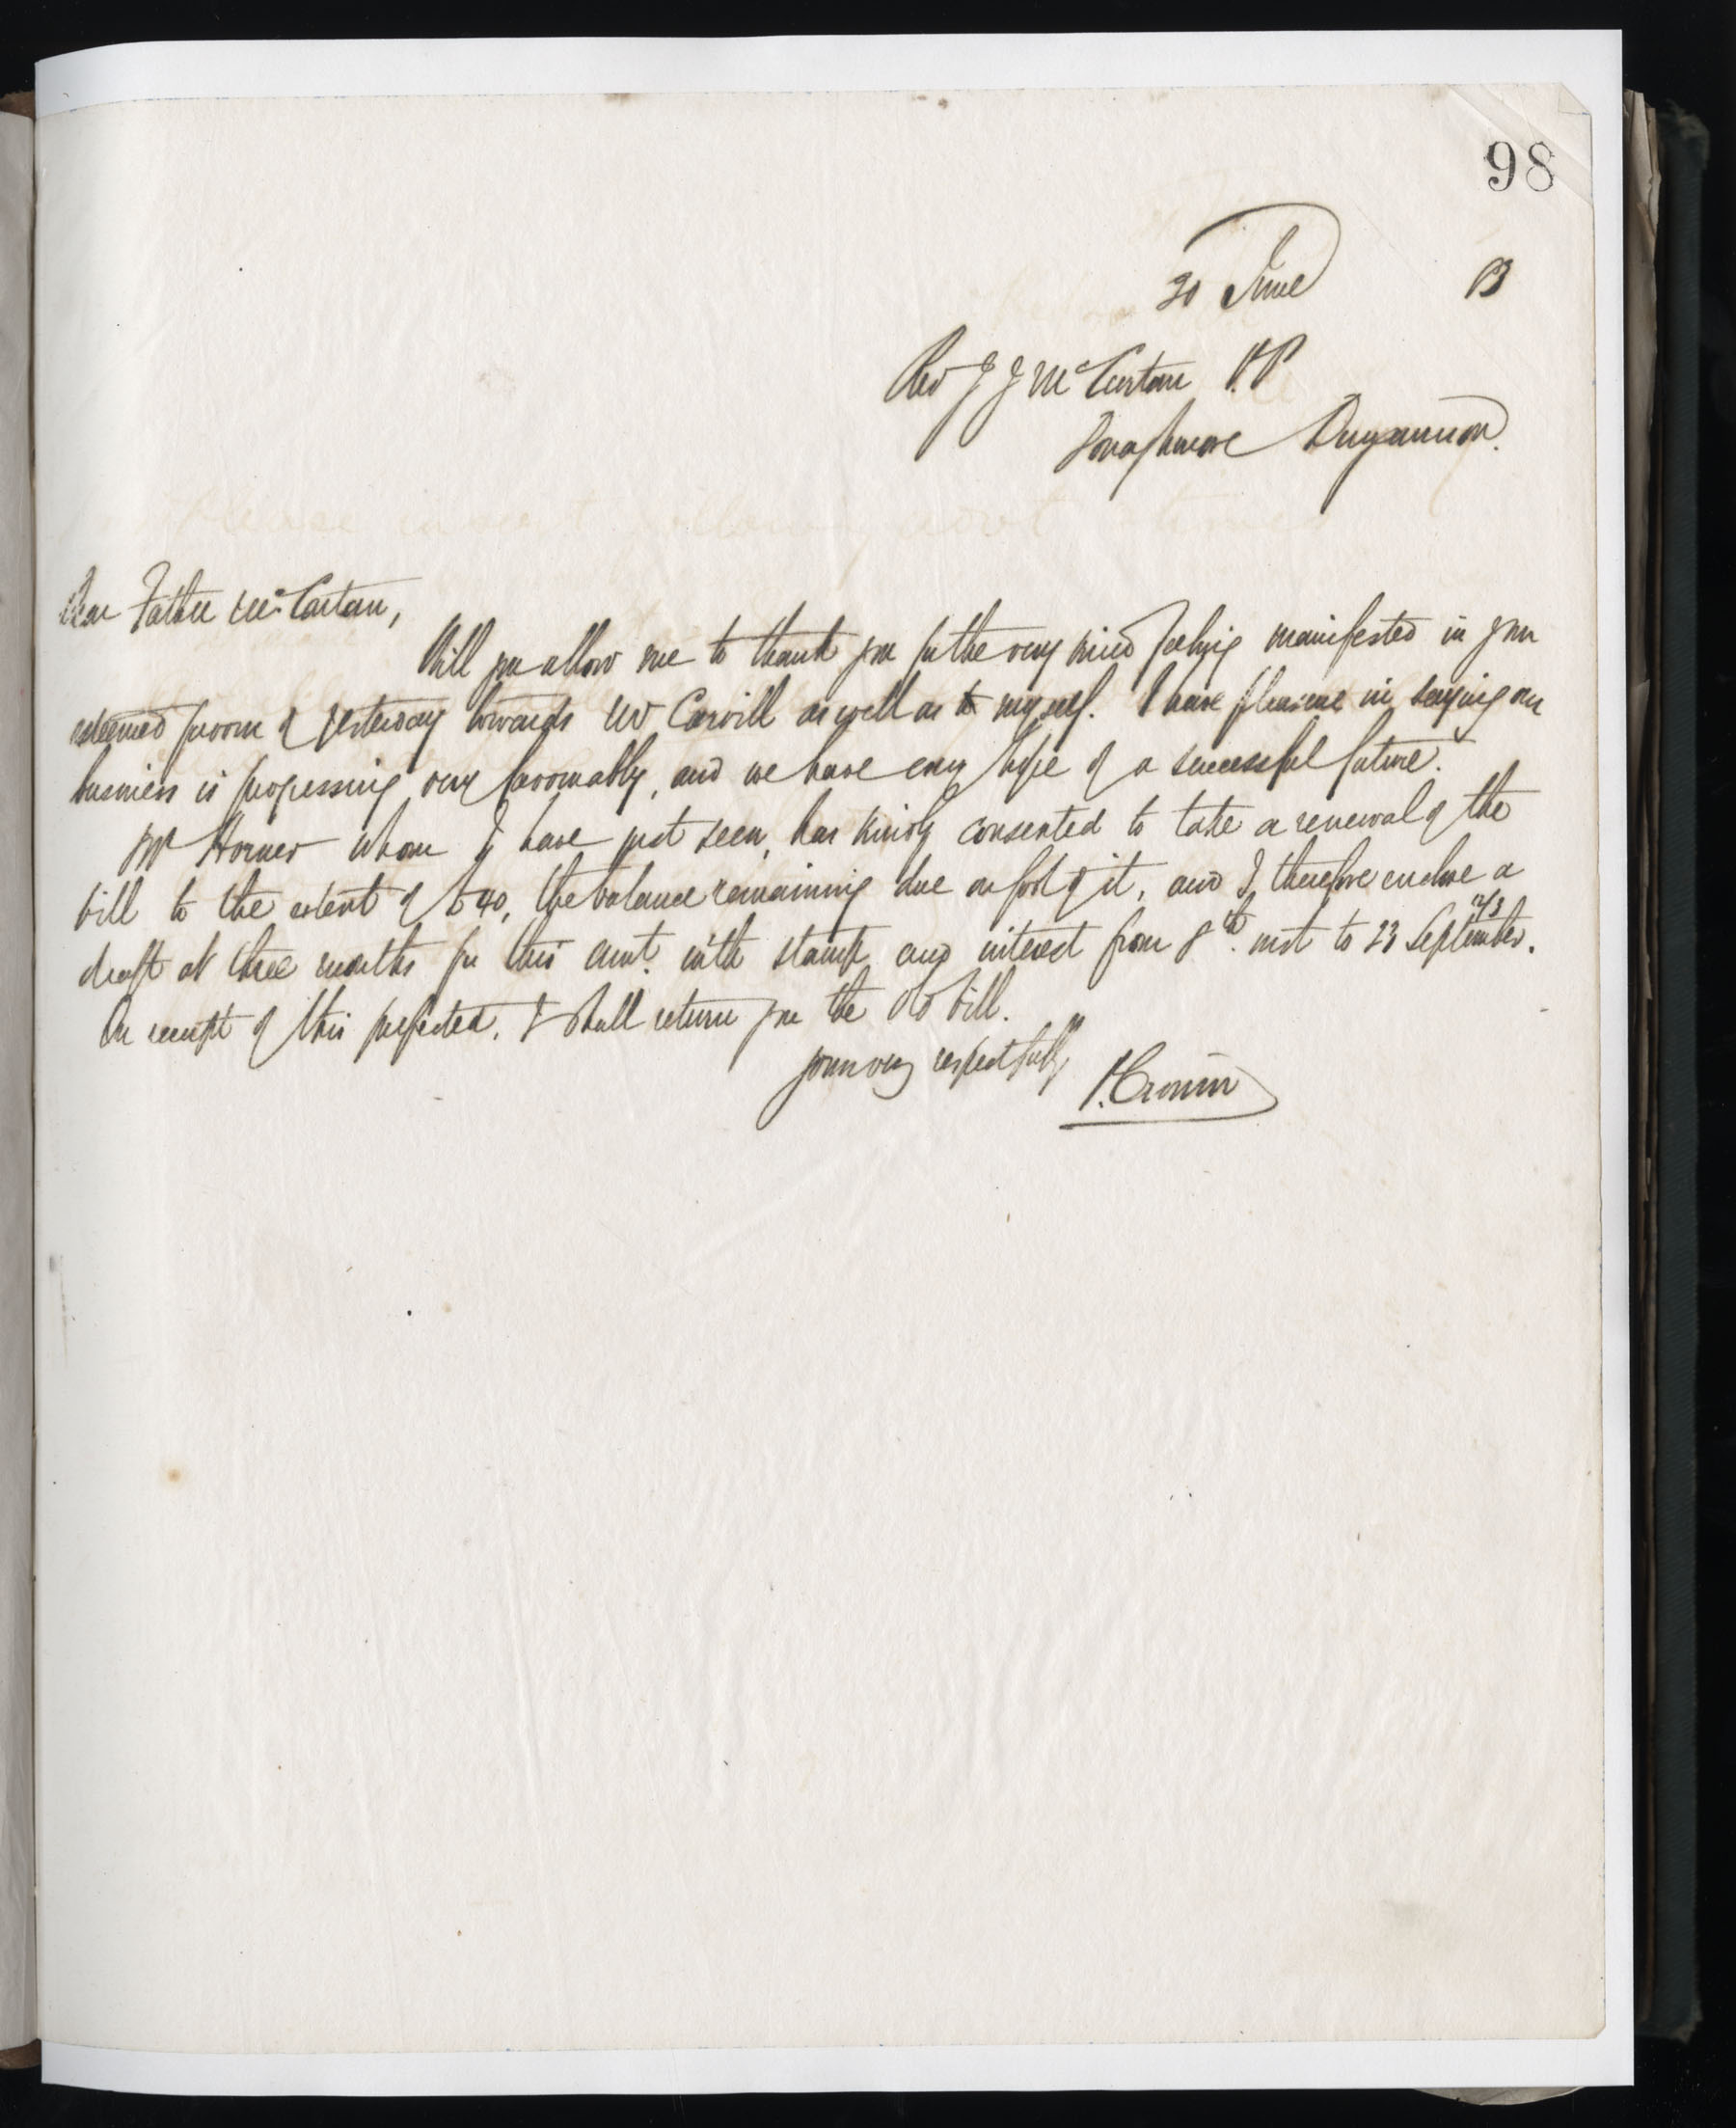 98
20 June 13
Rev J J McCartan P.P
Donaghmore Dungannon.
Dear Father McCartan,
Will you allow me to thank you for the very kind feeling manifested in your
esteemed favour of yesterday towards Mr Carvill as well as to myself. I have pleasure in saying our
business is progressing very favourably, and we have every hope of a successful future.
Mr Horner whom I have just seen, has kindly consented to take a renewal of the
bill to the extent of £40, the balance remaining due on foot of it, and I therefore enclose a
draft at three months for this amt. with stamp and interest from 8th. inst to 23 September.
On receipt of this perfected, I shall return you the old bill.
Yours very respectfully
P. Cronin